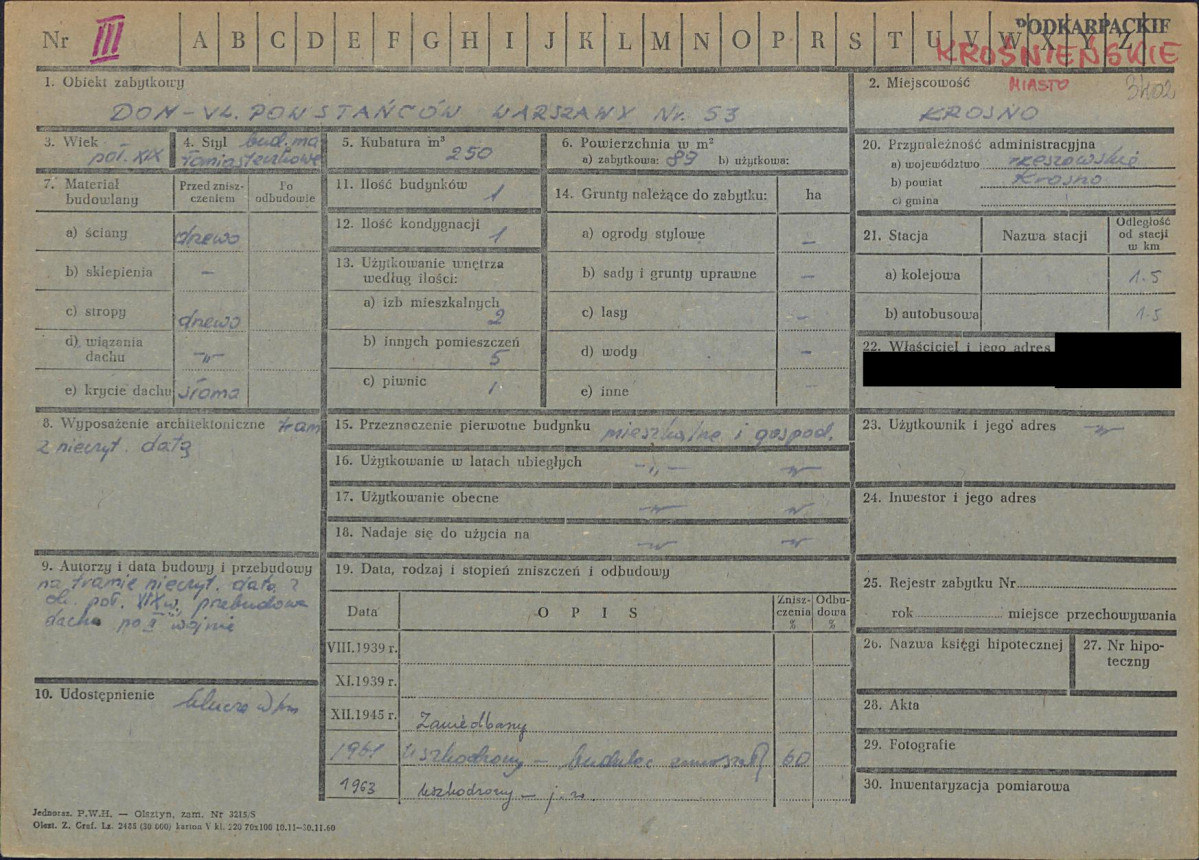 Nr III A B C D E F G H I J K L M N O P R S T U V W X Y Z PODKARPACKIE
KROŚNIEŃSKIE
1. Obiekt zabytkowy
DOM - UL. POWSTAŃCÓW WARSZAWY Nr. 53
2. Miejscowość MIASTO 3402
KROSNO
3. Wiek
poł. XIX
4. Styl bud. ma
łomiasteczkowe
5. Kubatura m³
250
6. Powierzchnia w m²
a) zabytkowa: 89 b) użytkowa:
20. Przynależność administracyjna
a) województwo rzeszowskie
b) powiat Krosno
c) gmina
7. Materiał budowlany
Przed znisz-
czeniem
Po
odbudowie
a) ściany drzewo
b) sklepienia –
c) stropy drzewo
d) wiązania
dachu –"–
e) krycie dachu słoma
11. Ilość budynków
1
12. Ilość kondygnacji
1
13. Użytkowanie wnętrza
według ilości:
a) izb mieszkalnych
2
b) innych pomieszczeń
5
c) piwnic 1
14. Grunty należące do zabytku: ha
a) ogrody stylowe –
b) sady i grunty uprawne –
c) lasy –
d) wody –
e) inne –
21. Stacja Nazwa stacji
Odległość
od stacji
w km
a) kolejowa 1.5
b) autobusowa 1.5
22. Właściciel i jego adres
8. Wyposażenie architektoniczne tram
z nieczyt. datą
15. Przeznaczenie pierwotne budynku mieszkalne i gospod.
16. Użytkowanie w latach ubiegłych –"–
17. Użytkowanie obecne –"–
18. Nadaje się do użycia na –"–
23. Użytkownik i jego adres –"–
24. Inwestor i jego adres
9. Autorzy i data budowy i przebudowy
na tramie nieczyt. data ?
ok. poł. XIX w. przebudowa
dachu po I wojnie
10. Udostępnienie
19. Data, rodzaj i stopień zniszczeń i odbudowy
Data O P I S
Znisz-
czenia
%
Odbu-
dowa
%
VIII.1939 r.
XI.1939 r.
XII.1945 r. Zaniedbany
1961 uszkodzony – budulec 60
1963 uszkodzony – j.w.
25. Rejestr zabytku Nr
rok miejsce przechowywania
26. Nazwa księgi hipotecznej
27. Nr hipo-
teczny
28. Akta
29. Fotografie
30. Inwentaryzacja pomiarowa
Jednoraz. P.W.H. — Olsztyn, zam. Nr 3215/S
Olszt. Z. Graf. Lz. 2485 (30 000) karton V kl. 220 70x100 10.11—30.11.60